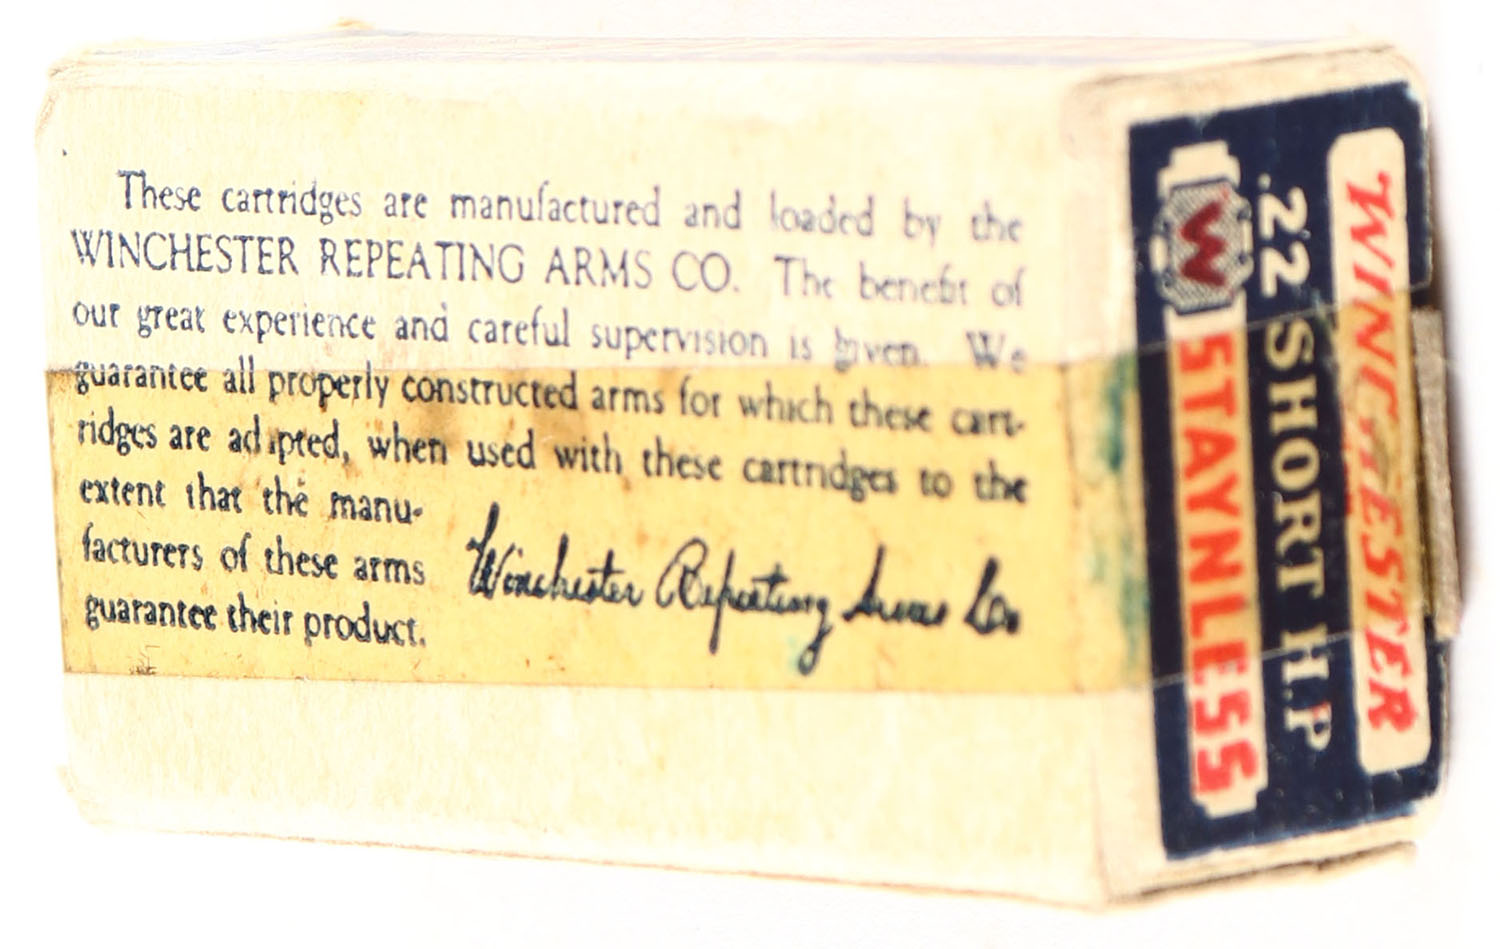 These cartridges are manufactured and loaded by the
WINCHESTER REPEATING ARMS CO. The benefit of
our great experience and careful supervision is given. We
guarantee all properly constructed arms for which these cart-
ridges are adapted, when used with these cartridges to the
extent that the manu-
facturers of these arms
guarantee their product.
Winchester Repeating Arms Co.
WINCHESTER
.22 SHORT H.P
W STAYNLESS